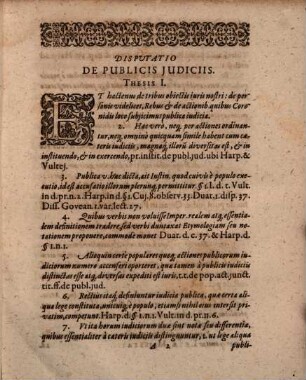 DISPUTATIO
DE PUBLICIS JUDICIIS.
THESIS I.
ET hactenus de tribus obiectis iuris nostri: de per-
sonis videlicet, Rebus & de actionib. quibus Coro-
nidis loco subjicimus publica iudicia.
2. Hæc vero, neq. per actiones ordinan-
tur, neq. omnino quicquam simile habent cum cæ-
teris iudiciis, magnaq. illorū diversitas est, & in
instituendo, & in exercendo, pr. instit. de publ. jud. ubi Harp. &
Vultej.
3. Publica v. hæc dicta, ait Justin. quod cuivis è populo exe-
cutio, id est accusatio illorum plerunq. permittitur §. 1. I. d. t. Vult.
in d. pr. n. 2. Harp. in d. §. 1. Cuj. 8. observ. 33. Duar. 1. disp. 37.
Diss. Govean. 1. var. lect. 17.
4. Quibus verbis non voluit Imper. realem atq. essentia-
lem definitionem tradere, sed verbi duntaxat Etymologiam seu no-
tationem proponere, utommode monet Duar. d. c. 37. & Harp. d.
§. 1. n. 1.
5. Alioquin certè populares quoq. actiones publicorum
iudiciorum numero accenseri oporteret, quæ tamen à publicis iudiciis
distinctæ atq. diversæ esse reperiuntur, t. t. de pop. act. junct.
tit. ff. de publ. jud.
6. Rectius itaq. definiuntur iudicia publica, quæ certa ali
qua lege constituta, unicuiq. à populo, etiamsi nihil eius intersit pri-
vatim, competunt. Harp. d. §. 1. n. 1. Vult. in d. pr. n. 6.
7. Vi ita horum iudiciorum duæ sint notæ seu differentiæ,
quibus essentialiter à cæteris iudiciis distinguuntur, 1. ut lege aliqua
A 2 publi-